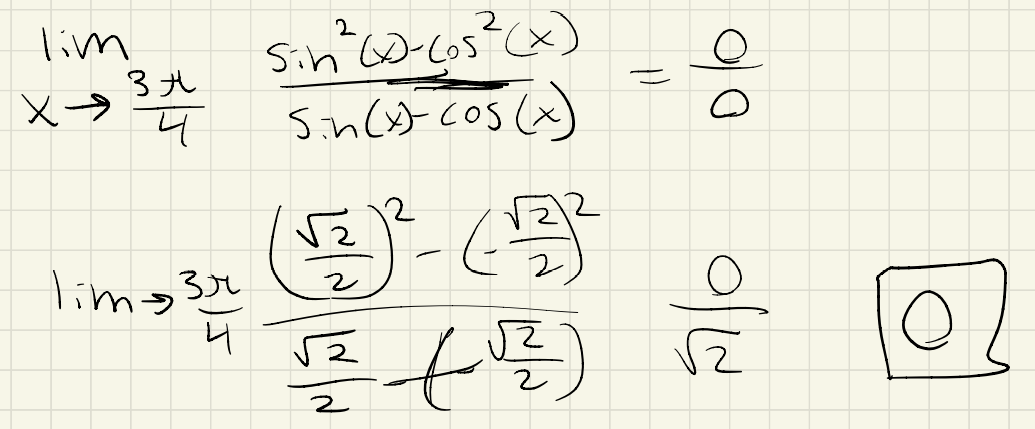 lim x→3π/4 (sin²(x)-cos²(x))/(sin(x)-cos(x)) = 0/0
lim→3π/4 ((√2/2)² - (-√2/2)²)/(√2/2 - (√2/2)) 0/√2 0